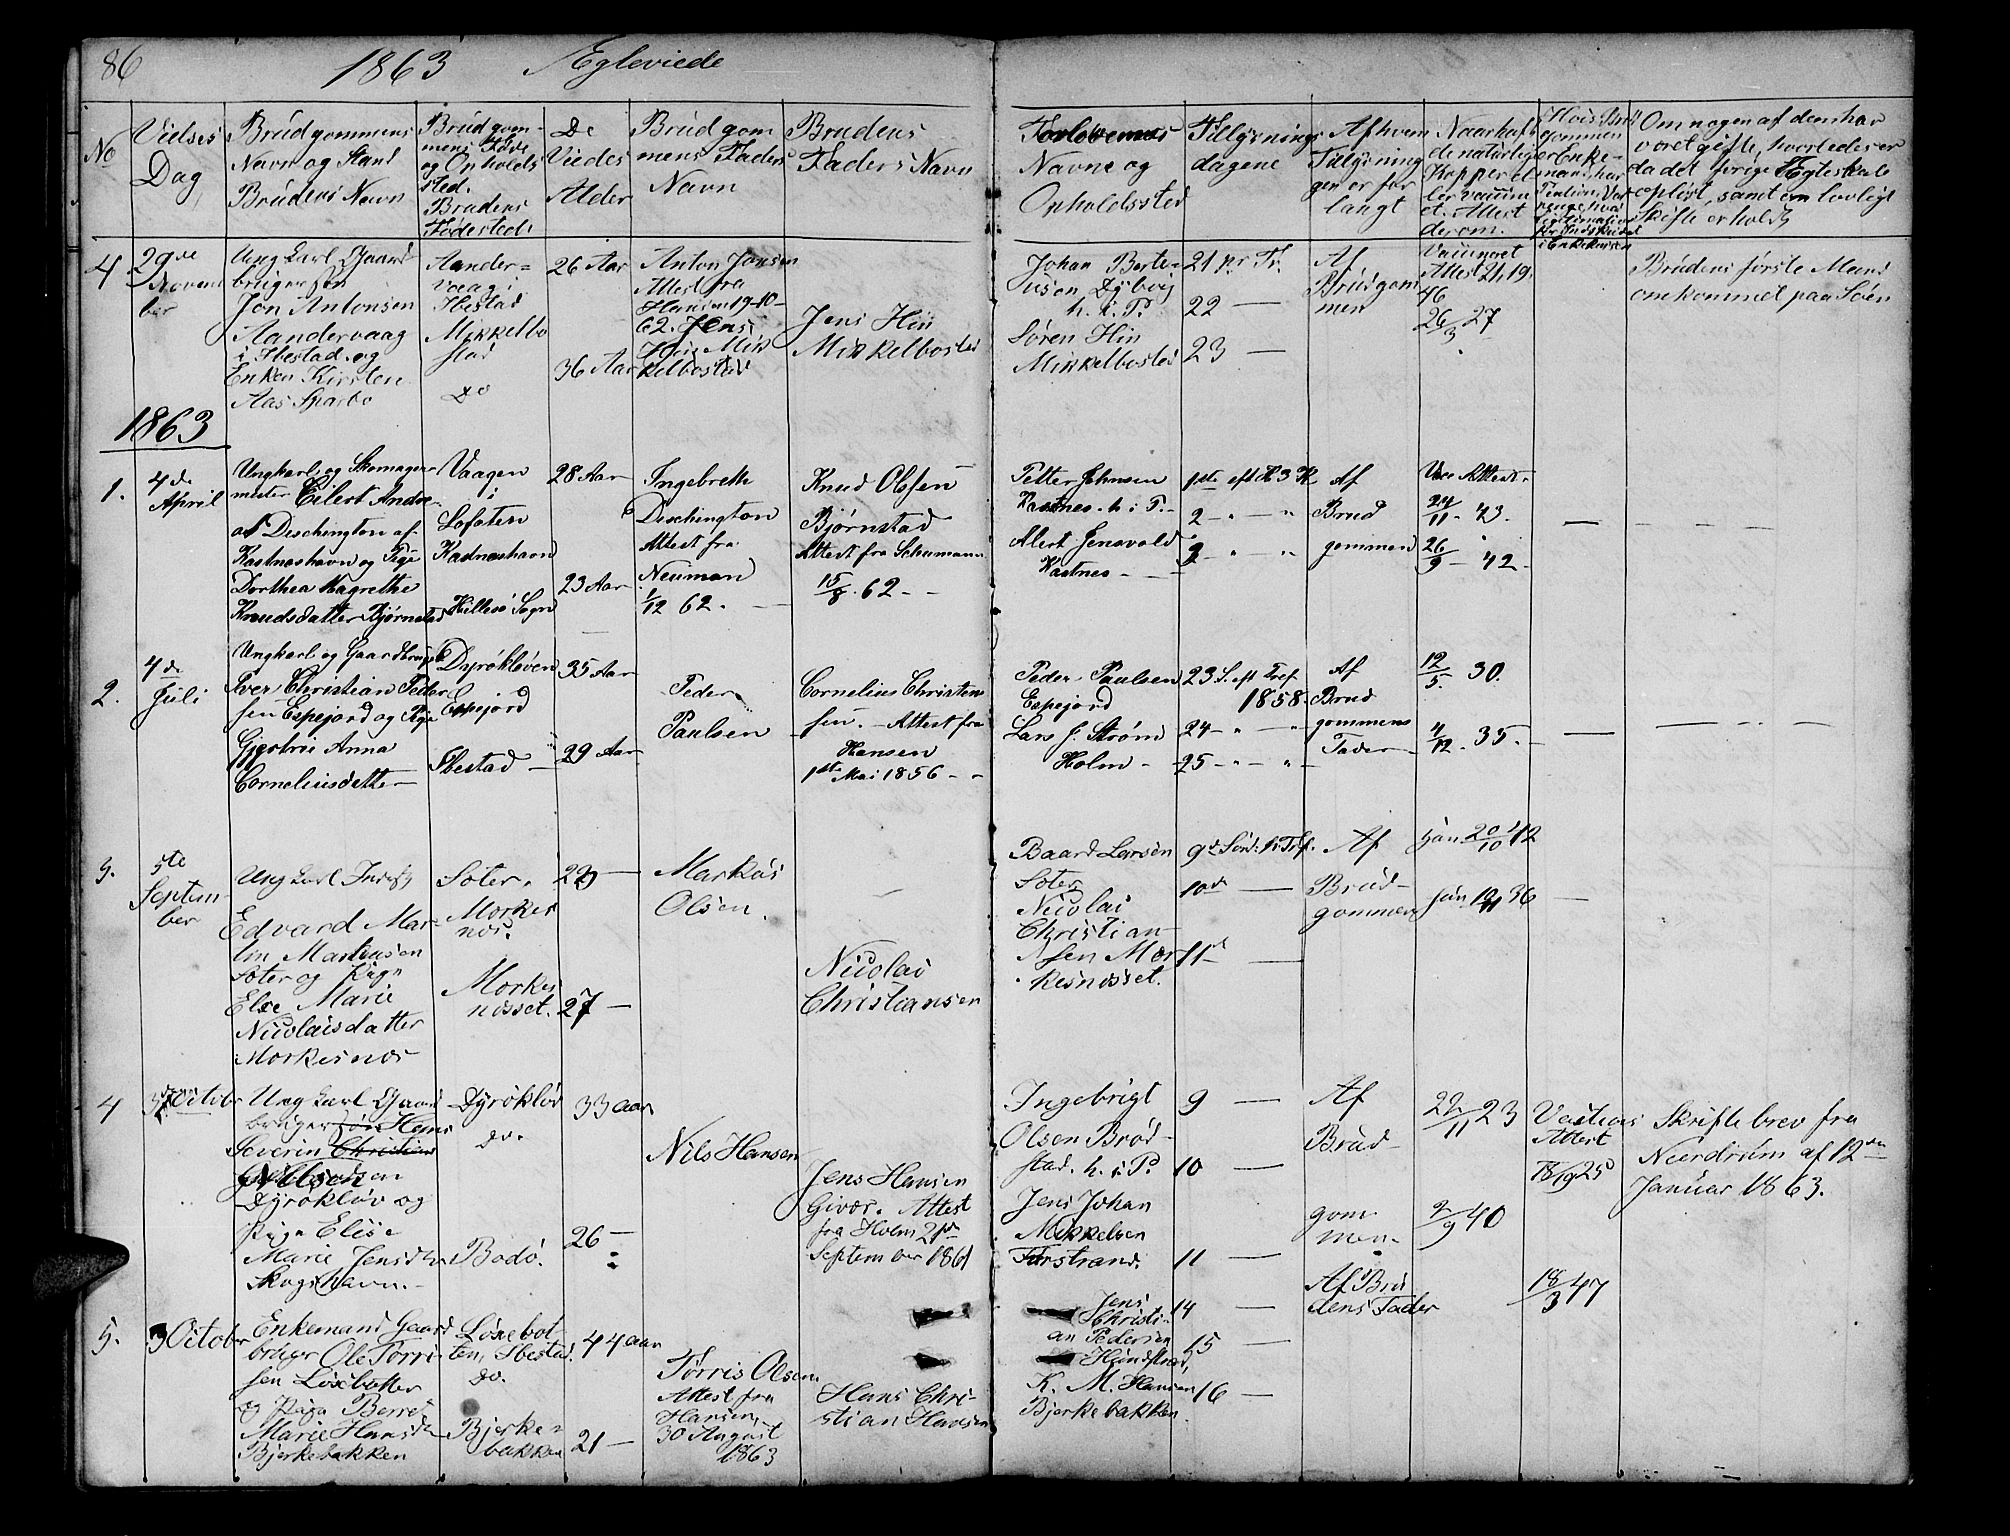 86 1863 Ægteviede
No
Vielses Dag
Brudgommens Navn og Stand Brudens Navn
Brudgommens Føde og Opholdssted. Brudens Fødested
De Viedes Alder
Brudgommens Faders Navn
Brudens Faders Navn
Forlovernes Navne og Opholdssted
Tillysnings dagene
Af hvem Tillysningen er forlangt
Naar havde naturlige Kopper eller vaccine et. Attest derom.
Hvis Brudgommen er Enkemand, har
Om nogen af dem har været gifte, hvorledes er da det forige Egteskab opløst, samt om lovligt Skifte er holdt
4
29de Novem
ber
Ungkarl Gaard
bruger
Jon Antonsen
Aandervaag
i Ibestad og
Enken Kirsten
Aas Sparbo
Aander=
vaag i
Ibestad
Mikkelbo
stad
do
26 Aar
36 Aar
Anton Jonsen
Attest fra
Hansen 19-10-
62. Jens
Hin Mik
kelbostad
Jens Hin
Mikkelbosted
Johan Berte=
usen Dyboy
h. i. P.
Søren Hin
Mikkelbosted
21 pr Tr.
22 —
23 —
Af
Brudgom
men
Vaccineret
Attest 21/19
46
26/3 27
Brudens første Mand
omkommet paa Søen
1863
1.
4de
April
Ungkarl og Skomager
mester Eilert Andre
as Dischington af
Kastneshavn og Pige
Dorthea Magrethe
Knudsdatter Bjørnstad
Vaagen
i
Lofoten
Kastneshavn
Hillesø Sogn
28 Aar
23 Aar
Ingebreth
Dischington
Attest fra
Neuman
1/12 62.
Knud Olsen
Bjørnstad
Attest fra Schumann
15/8. 62 - -
Petter Johnsen
Kastnes. h. i P. -
Alert Jensvold
Kastnes - —
1ste eft H 3 K
2 - " - "
3 - " - "
Af
Brud
gommen
Vac Attest
24/11 - 43.
26/9 - 42 -
— — — —
2.
4de
Juli
Ungkarl og Gaardbruger
Iver Christian Peder
sen Espejord og Pige
Anna
Corneliusdatter
Dyrøkløven
Espejord
Ibestad —
35 Aar
29 Aar
Peder
Paulsen
Cornelius Christen
sen. - Attest fra
Hansen
1ste Mai 1856 - -
Peder Paulsen
Espejord
Lars J. Strøm
Holm -
23 S. eft Tref
1858.
24 - " - "
25 - " - "
Af
Brud
gommens
Fader
12/5. 30.
4/12. 35. -
— — — —
3.
5te
Septem
ber
Ungkarl
Edvard Mar
tin Martinsen
Soter og Pige
Else Marie
Nicolaisdatter
Morkesnæs
Soter.
Morkes
næs.
Morkes
næsset.
29 —
27 —
Markus
Olsen.
Nicolai
Christiansen
Baard Larsen
Soter
Nicolai
Christian
sen Mor
kesnæsset.
9de Sønd. i Tref.
10de —
11te —
Af
Brud-
gommen
20/10 42
36
—
4
Octobr
Ungkarl Gaard
bruger Hans
Severin Christian
Nilsen
Dyrøkløv og
Pige Elise
Marie Jensdtr
Skogshavn. -
Dyrøkløv
do.
Bodø.
33 aar
26 —
Nils Hansen
Jens Hansen
Givær. Attest
fra Holm 21de
September 1861
Ingebrigt
Olsen Brød-
stad. h. i P.
Jens Johan
Mikkelsen
Forstrand.
9 —
10 —
11 —
Af
Brud-
gom
men.
22/11 23
2/9 40
Vactions
Attest
18/9 25
Skifte brev fra
Nierdrúm af 12te
Januar 1863.
5.
3 Octobr
Enkemand Gaard
bruger Ole Torri-
sen Løsebotten
og Pige Berret
Marie Hansdtr
Bjerkebakken
Løsebot
ten, Ibestad.
do.
Bjerke=
bakken
44 aar
21 —
Torris Olsen
Attest fra
Hansen,
30 August
1863
Hans Chri-
stian Hansen
Jens
Christi-
an Pedersen
Hundstrad,
K. M. Hansen
Bjerkebakken.
14 —
15 —
16 —
Af Bru
dens Fader
18/3 47